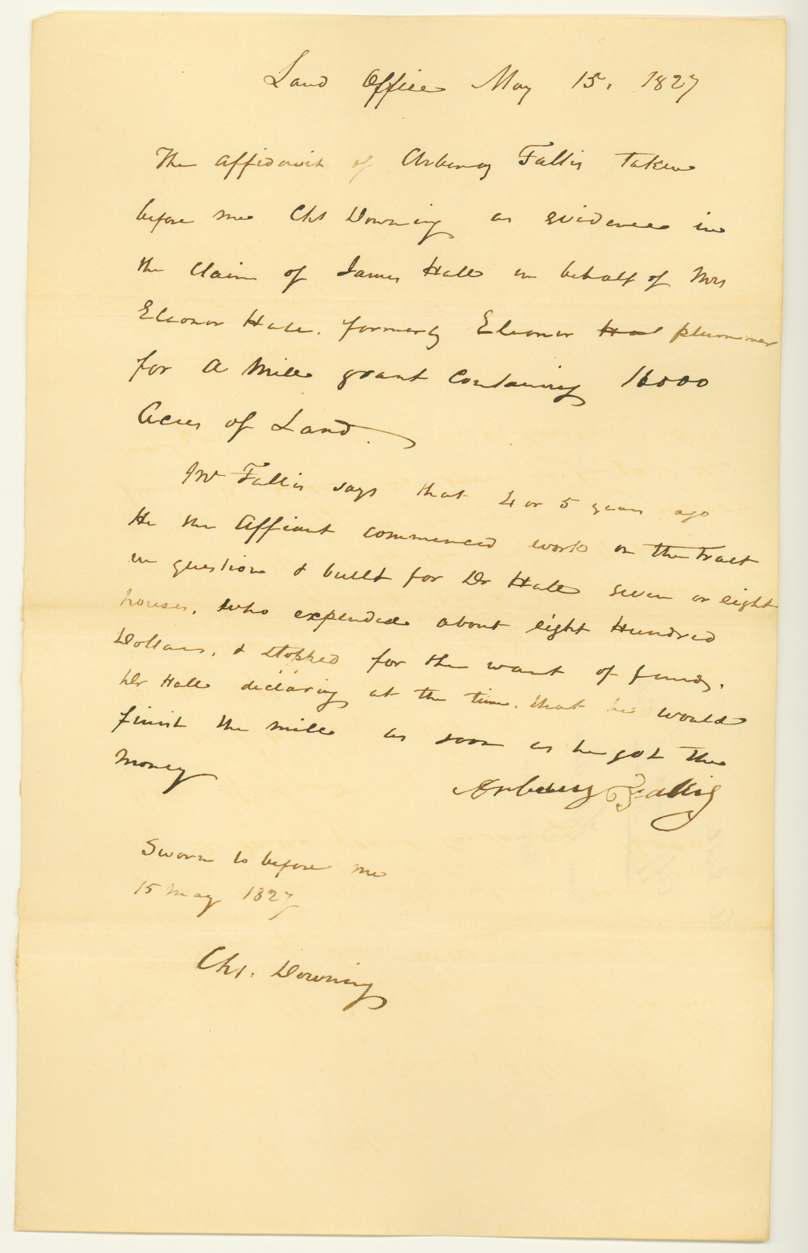 Land Office May 15, 1827
The affidavit of Arbeny Fallis taken
before me Chs Downing as evidence in
the Claim of James Hall in behalf of Mrs
Eleonor Hall. formerly Eleonor Hal plummer
for a Mill grant Containing 16000
Acres of Land.
Mr Fallis says that 4 or 5 years ago
He the Affiant commenced work on the tract
in question & built for Dr Hall seven or eight
houses, who expended about eight Hundred
Dollars, & stopped for the want of funds,
Dr Hall declaring at the time, that he would
finish the mill as soon as he got the
money
Arbeny Fallis
Sworn to before me
15 May 1827
Chs. Downing